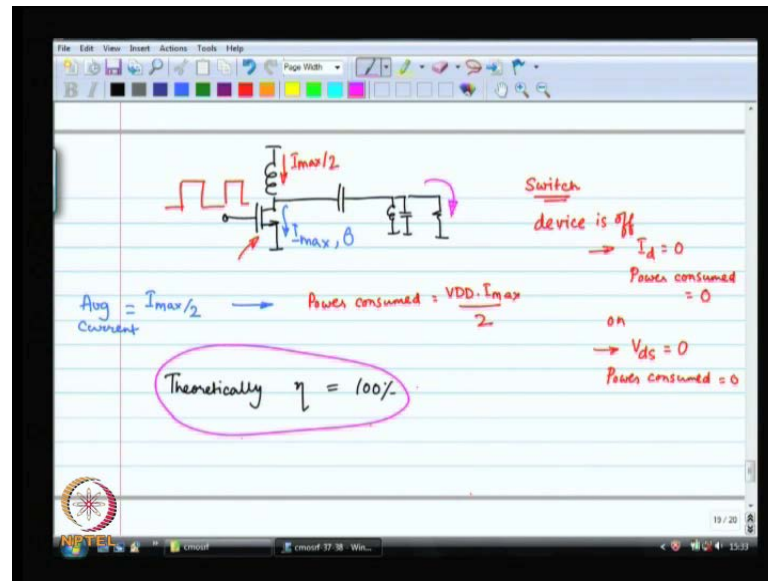 File Edit View Insert Actions Tools Help
Page Width
B I
Imax/2
Imax, 0
Switch
device is off
→ Id = 0
Power consumed
= 0
on
→ Vds = 0
Power consumed = 0
Avg = Imax/2 → Power consumed = VDD. Imax
2
Current
Theoretically η = 100%
19 / 20
NPTEL
cmosrf
cmosrf-37-38 - Win...
15:33